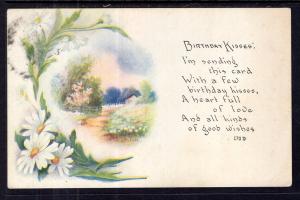 BIRTHDAY KISSES:
I'm sending
this card
With a few
birthday kisses,
A heart full
of love
And all kinds
of good wishes